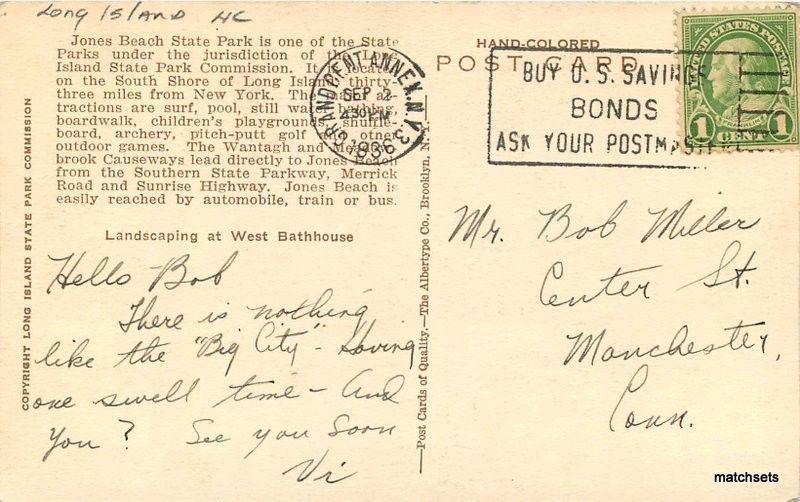 Long Island HC
Jones Beach State Park is one of the State
Parks under the jurisdiction of the Long
Island State Park Commission. It is located
on the South Shore of Long Island thirty-
three miles from New York. The main at-
tractions are surf, pool, still water bathing,
boardwalk, children's playgrounds, shuffle
board, archery, pitch-putt golf and other
outdoor games. The Wantagh and Meadow-
brook Causeways lead directly to Jones Beach
from the Southern State Parkway, Merrick
Road and Sunrise Highway. Jones Beach is
easily reached by automobile, train or bus.
Landscaping at West Bathhouse
COPYRIGHT LONG ISLAND STATE PARK COMMISSION
Hello Bob
There is nothing
like the "Big City" - Having
one swell time - And
You? See you soon
Vi
—Post Cards of Quality.—The Albertype Co., Brooklyn, N.Y.
HAND-COLORED
POST CARD
GRAND CENT. ANNEX. N.Y.
SEP 2
430 PM
1936
BUY U.S. SAVINGS
BONDS
ASK YOUR POSTMASTER
UNITED STATES POSTAGE
1 CENT 1
Mr. Bob Miller
Center St.
Manchester,
Conn.
matchsets